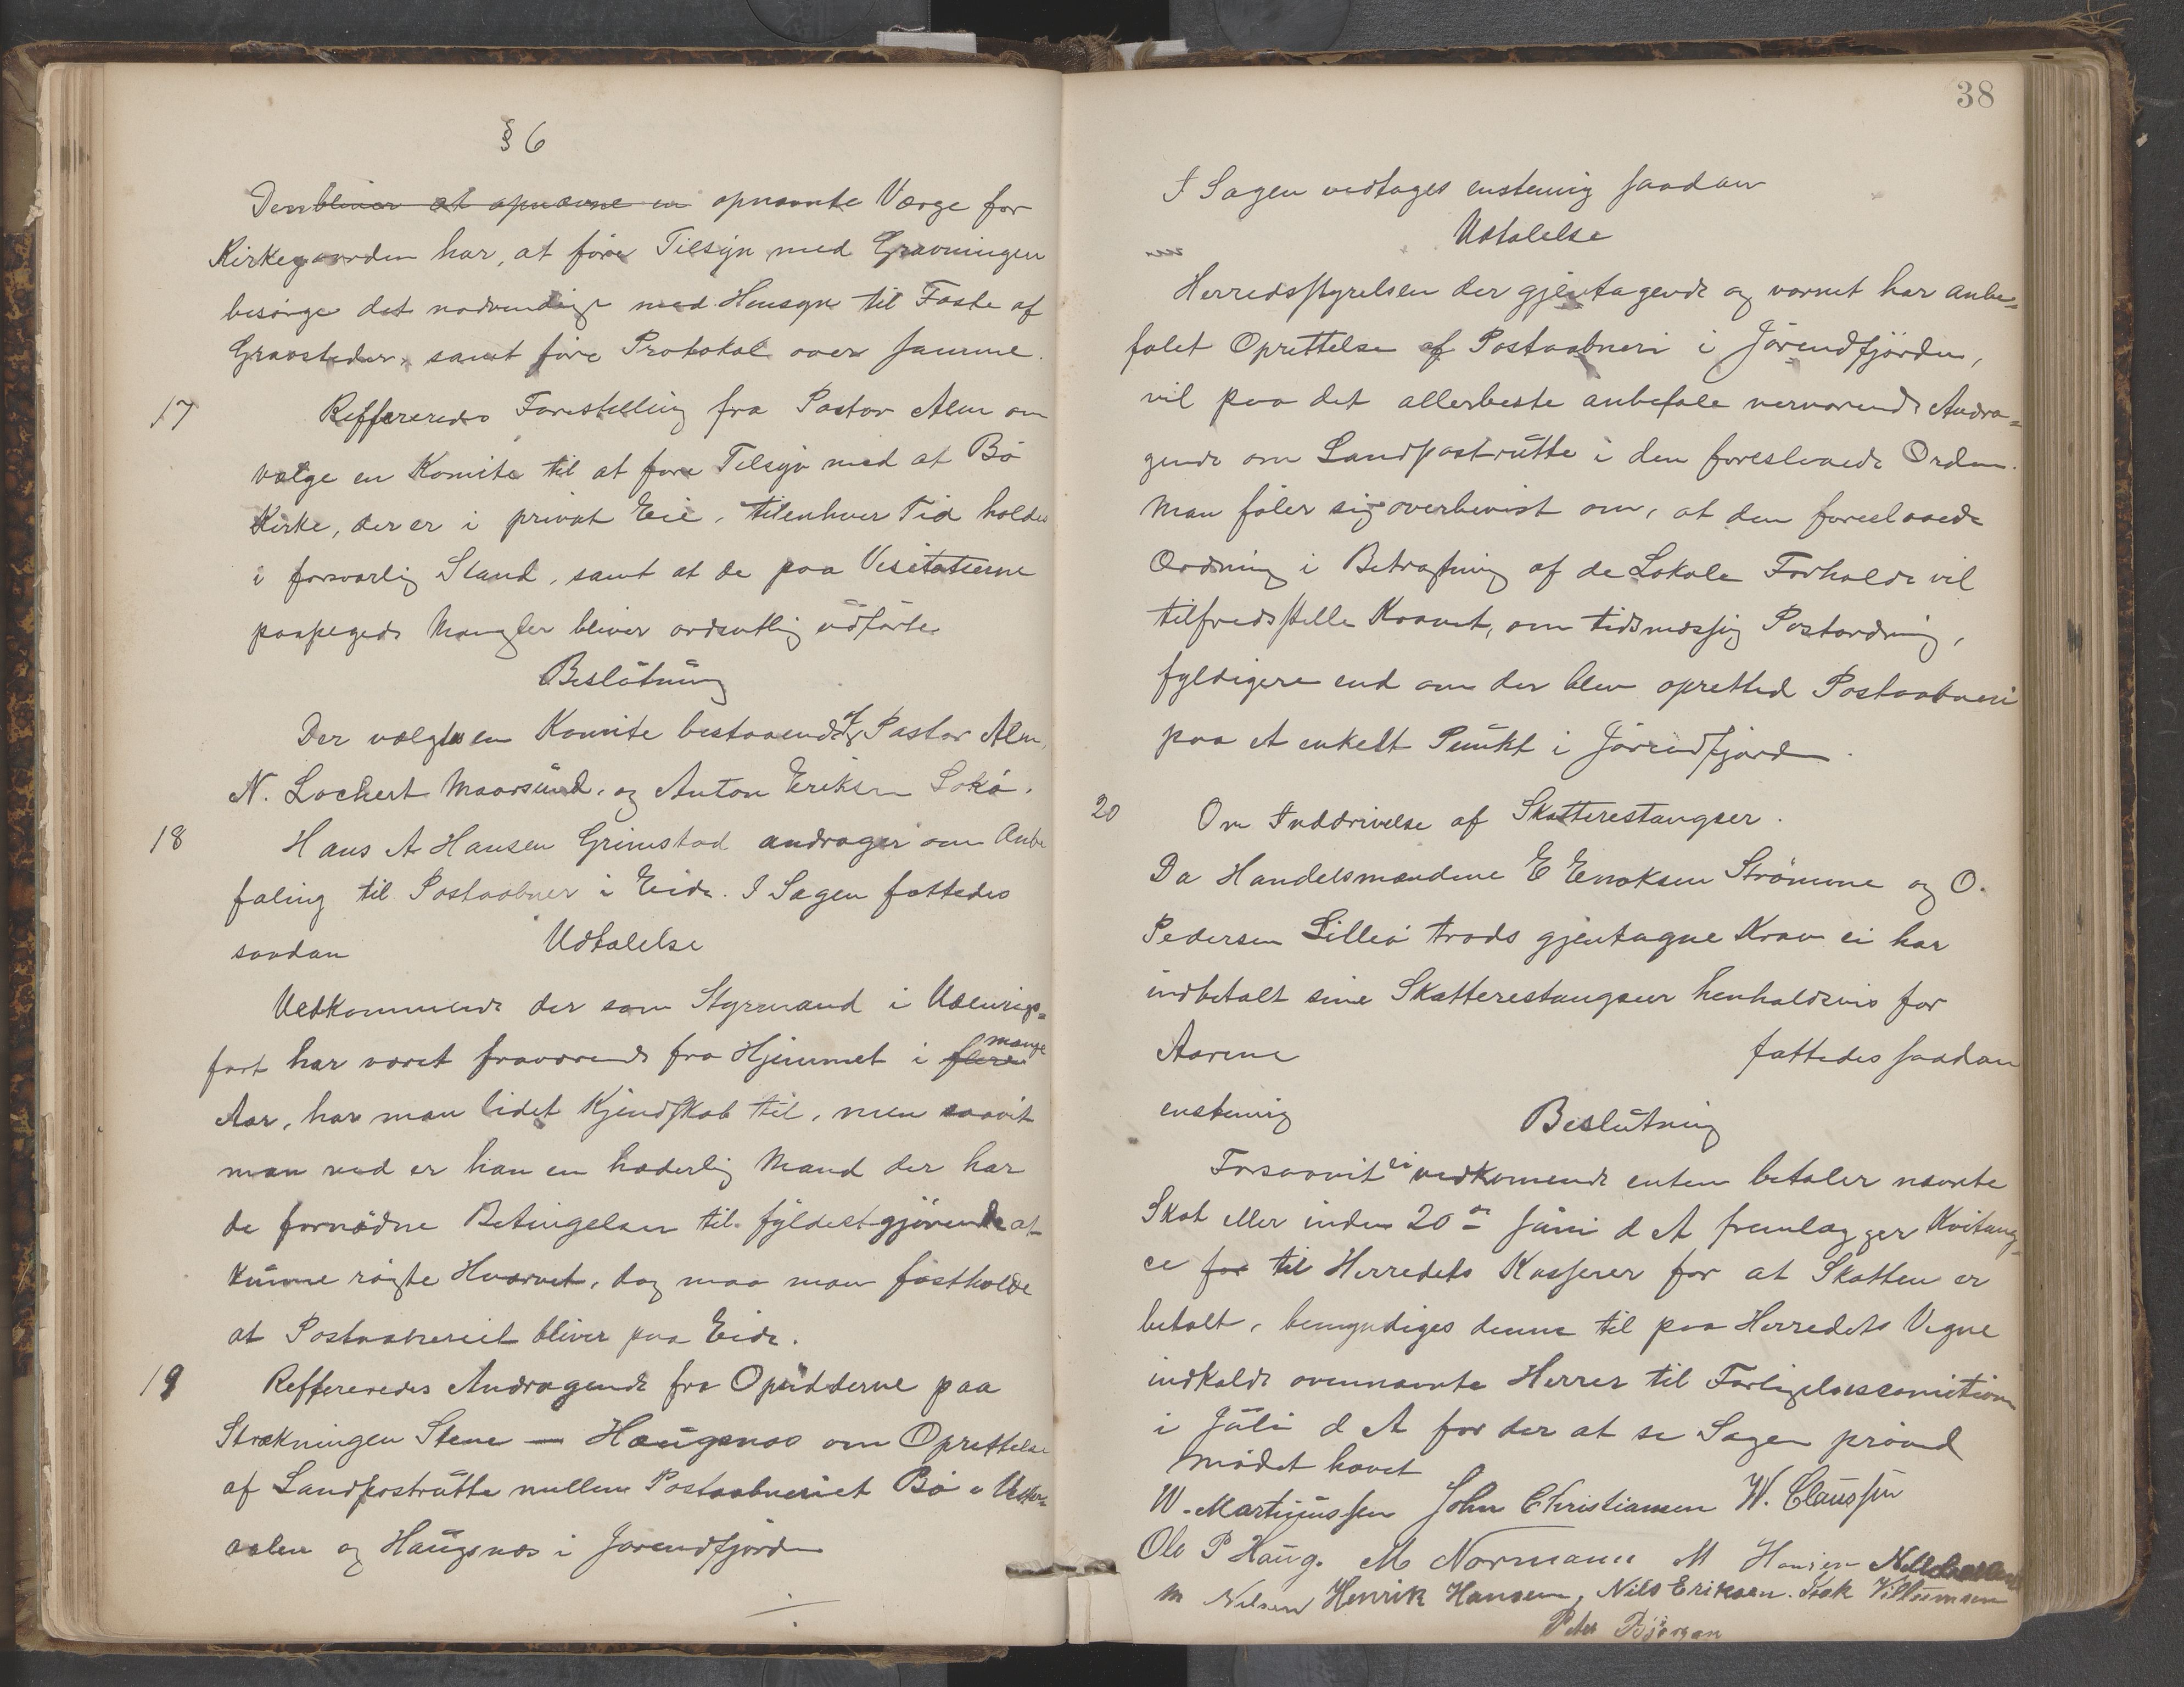 § 6
Den bliver at opnævne en opnævnte Værge for
Kirkegaarden har, at føre Tilsyn med Gravningen
besörge det nødvendige med Hensyn til Fæste af
Gravsteder, samt føre Protokol over samme.
17 Reffereredes Forestilling fra Pastor Alm om
vælge en Komite til at føre Tilsyn med at Bö
Kirke, der er i privat Eie, tilenhver Tid holdes
i forsvarlig Stand, samt at de paa Visitatserne
paapegede Mangler bliver ordentlig udførte
Beslutning
Der valgtes en Komite bestaaende af Pastor Alm,
N. Lochert Maarsund, og Anton Eriksen Sokö.
18 Hans A Hansen Grimstad andrager om Anbe
faling til Postaabner i Eide. I Sagen fattedes
saadan Udtalelse
Vedkommende der som Styrmand i Udenrigs=
fart har været fraværende fra Hjemmet i flere mange
Aar, har man lidet Kjendskab til, men saavit
man ved er han en hæderlig Mand der har
de fornödne Betingelser til fyldestgjørende at
kunne røgte Hvervet, dog maa man fastholde
at Postaabneriet bliver paa Eide.
19 Refferereredes Andragende fra Opsidderne paa
Strækningen Stene — Haugsnæs om Oprettelse
af Landpostrutte mellem Postaabneriet Bö i Vester=
aalen og Haugsnæs i Jörendfjorden
38
I Sagen vedtages enstemig saadan
Udtalelse
Herredsstyrelsen der gjentagende og varmt har anbe=
falet Oprettelse af Postaabneri i Jörendfjörden,
vil paa det allerbeste anbefale nærværende Andra=
gende om Landpostrutte i den foreslaaede Orden.
Man føler sig overbevist om, at den foreslaaede
Ordning i Betragtning af de Lokale Forholde vil
tilfredsstille Kravet, om tidsmæssig Postordning,
fyldigere end om der blev opretted Postaabneri
paa et enkelt Punkt i Jörendfjord
20 Om Inddrivelse af Skatterestangser.
Da Handelsmændene E Enoksen Strömme og O.
Pedersen Lilleö trods gjentagne Krav ei har
indbetalt sine Skatterestangser henholdsvis for
Aarene fattedes saadan
enstemig Beslutning
Forsaavit ei vedkomende enten betaler nævnte
Skat eller inden 20de Juni d A fremlægger Kvitang=
ce for til Herredets Kasserer for at Skatten er
betalt, bemyndiges denne til paa Herredets Vegne
indkalde ovennævnte Herrer til Forligelsescomition
i Juli d A for der at se Sagen prøved
Mødet hævet
W. Martinussen John Christiansen W. Claussen
Ole P Haug. M Normann M Hansen
M Nelsen Henrik Hansen, Nils Eriksen. Isak Villumsen
Peter Björgan